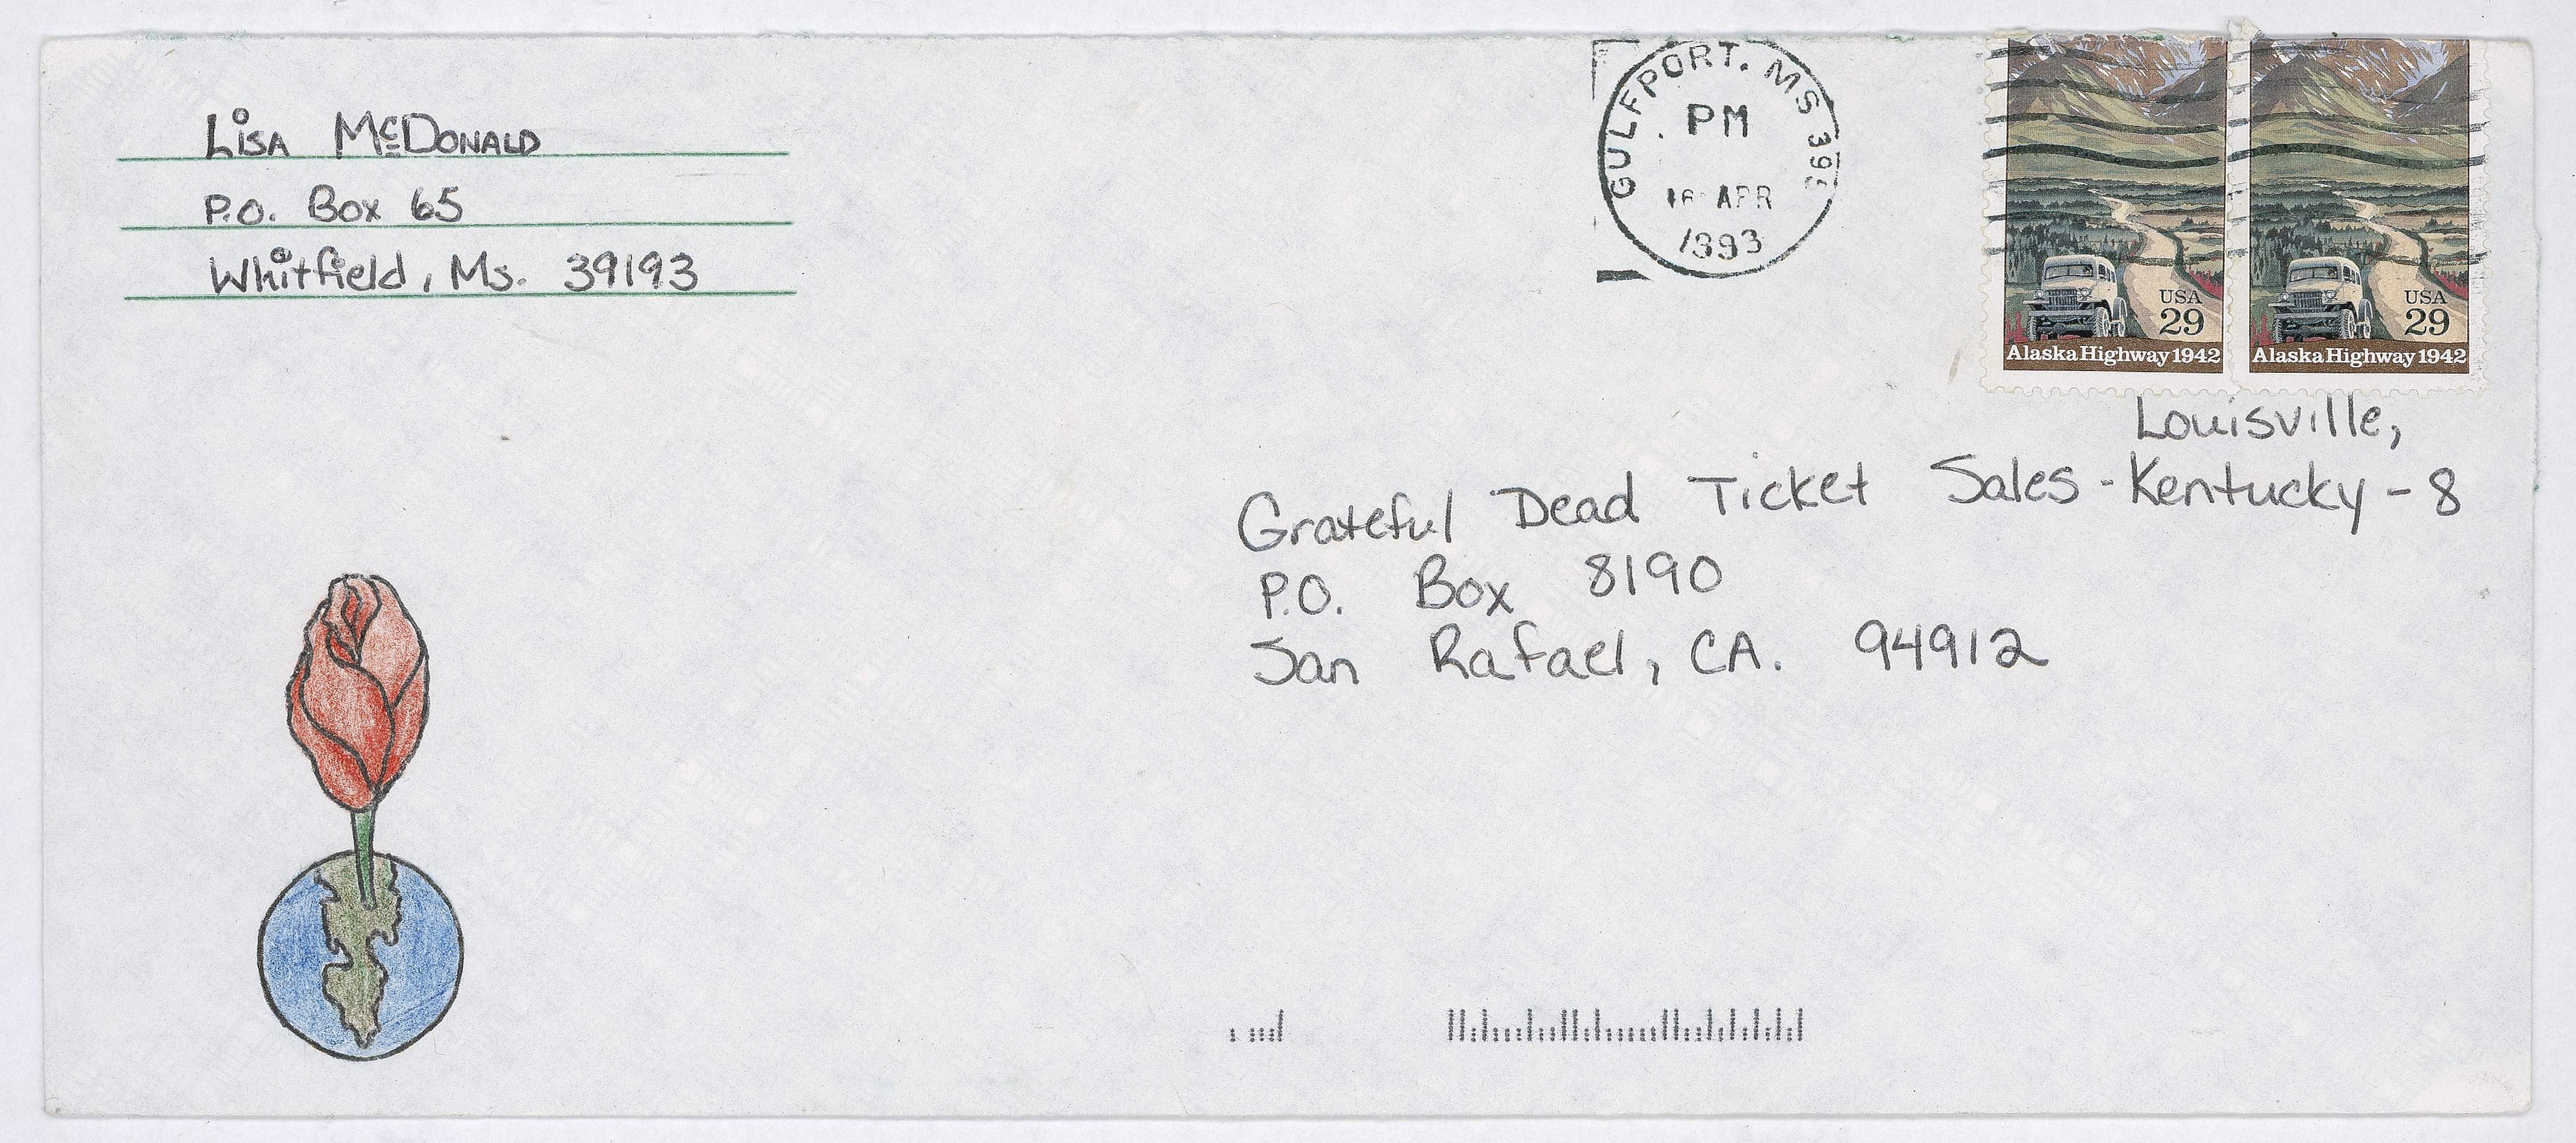 Lisa McDonald
P.O. Box 65
Whitfield, Ms. 39193
GULFPORT, MS
PM
APR
1993
USA
29
Alaska Highway 1942
USA
29
Alaska Highway 1942
Louisville,
Grateful Dead Ticket Sales - Kentucky - 8
P.O. Box 8190
San Rafael, CA. 94912